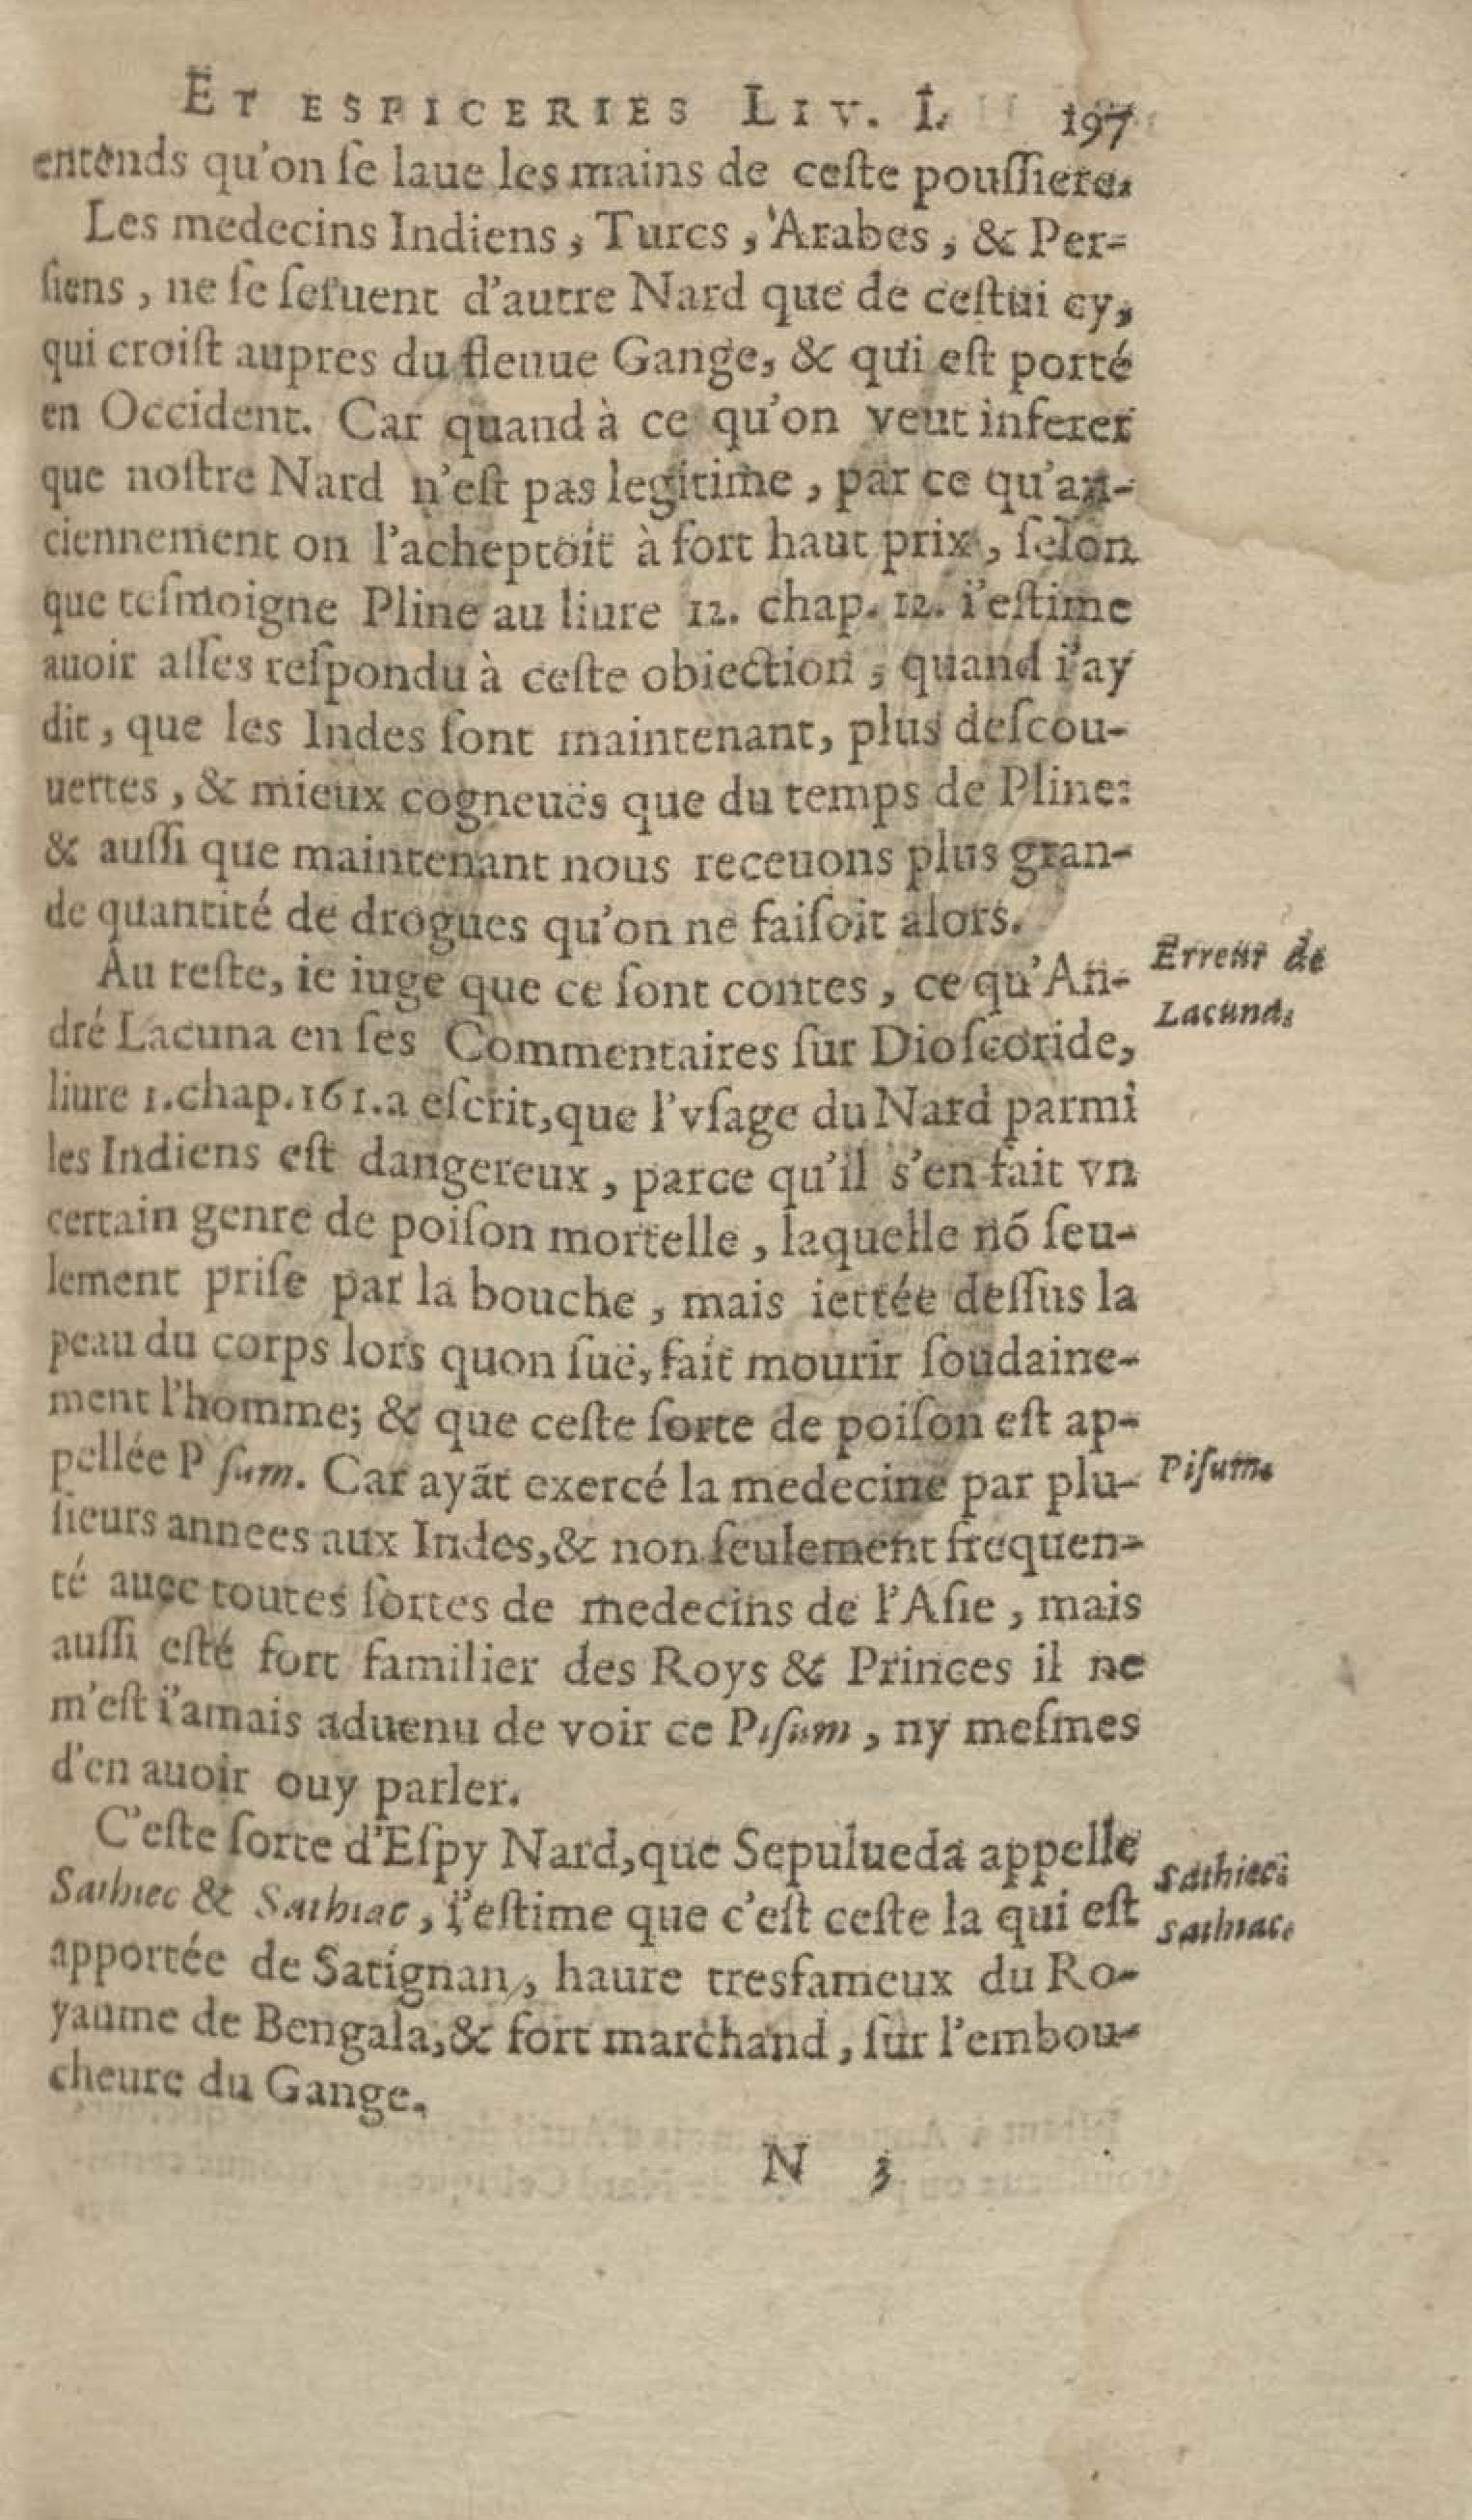 ET ESPICERIES LIV. I. 197
entends qu'on ſe laue les mains de ceſte pouſſiere.
Les medecins Indiens, Turcs, Arabes, & Per-
ſiens, ne ſe ſeruent d'autre Nard que de ceſtui cy,
qui croiſt aupres du fleuue Gange, & qui eſt porté
en Occident. Car quand à ce qu'on veut inferer
que noſtre Nard n'eſt pas legitime, par ce qu'an-
ciennement on l'acheptoit à fort haut prix, ſelon
que teſmoigne Pline au liure 12. chap. 12. i'eſtime
auoir aſſes reſpondu à ceſte obiection, quand i'ay
dit, que les Indes ſont maintenant, plus deſcou-
uertes, & mieux cogneuës que du temps de Pline:
& auſſi que maintenant nous receuons plus gran-
de quantité de drogues qu'on ne faiſoit alors.
Au reſte, ie iuge que ce ſont contes, ce qu'An-
Erreur de
Lacuna.
dré Lacuna en ſes Commentaires ſur Dioſcoride,
liure 1.chap.161.a eſcrit,que l'vſage du Nard parmi
les Indiens eſt dangereux, parce qu'il s'en fait vn
certain genre de poiſon mortelle, laquelle nō ſeu-
lement priſe par la bouche, mais iettée deſſus la
peau du corps lors quon ſuë, fait mourir ſoudaine-
ment l'homme; & que ceſte ſorte de poiſon eſt ap-
pellée P ſum. Car ayāt exercé la medecine par plu-
Piſum.
ſieurs annees aux Indes,& non ſeulement frequen-
té auec toutes ſortes de medecins de l'Aſie, mais
auſſi eſté fort familier des Roys & Princes il ne
m'eſt i'amais aduenu de voir ce Piſum, ny meſmes
d'en auoir ouy parler.
C'eſte ſorte d'Eſpy Nard,que Sepulueda appelle
Sathiec.
Sathiec & Sathiac, i'eſtime que c'eſt ceſte la qui eſt
Sathiac.
apportée de Satignan, haure tresfameux du Ro-
yaume de Bengala,& fort marchand, ſur l'embou-
cheure du Gange.
N 3